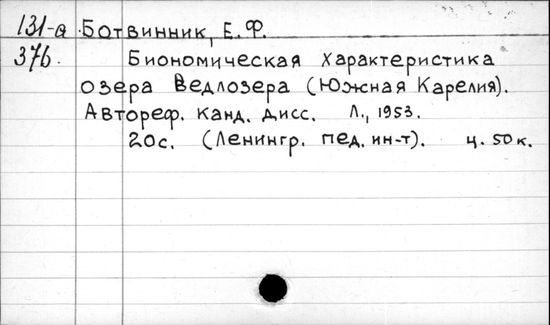 131-а Ботвинник, Е.Ф.
376. Биономическая характеристика
озера Ведлозера (Южная Карелия).
Автореф. канд. дисс. Л., 1953.
20с. (Ленингр. пед. ин-т). ц. 50к.